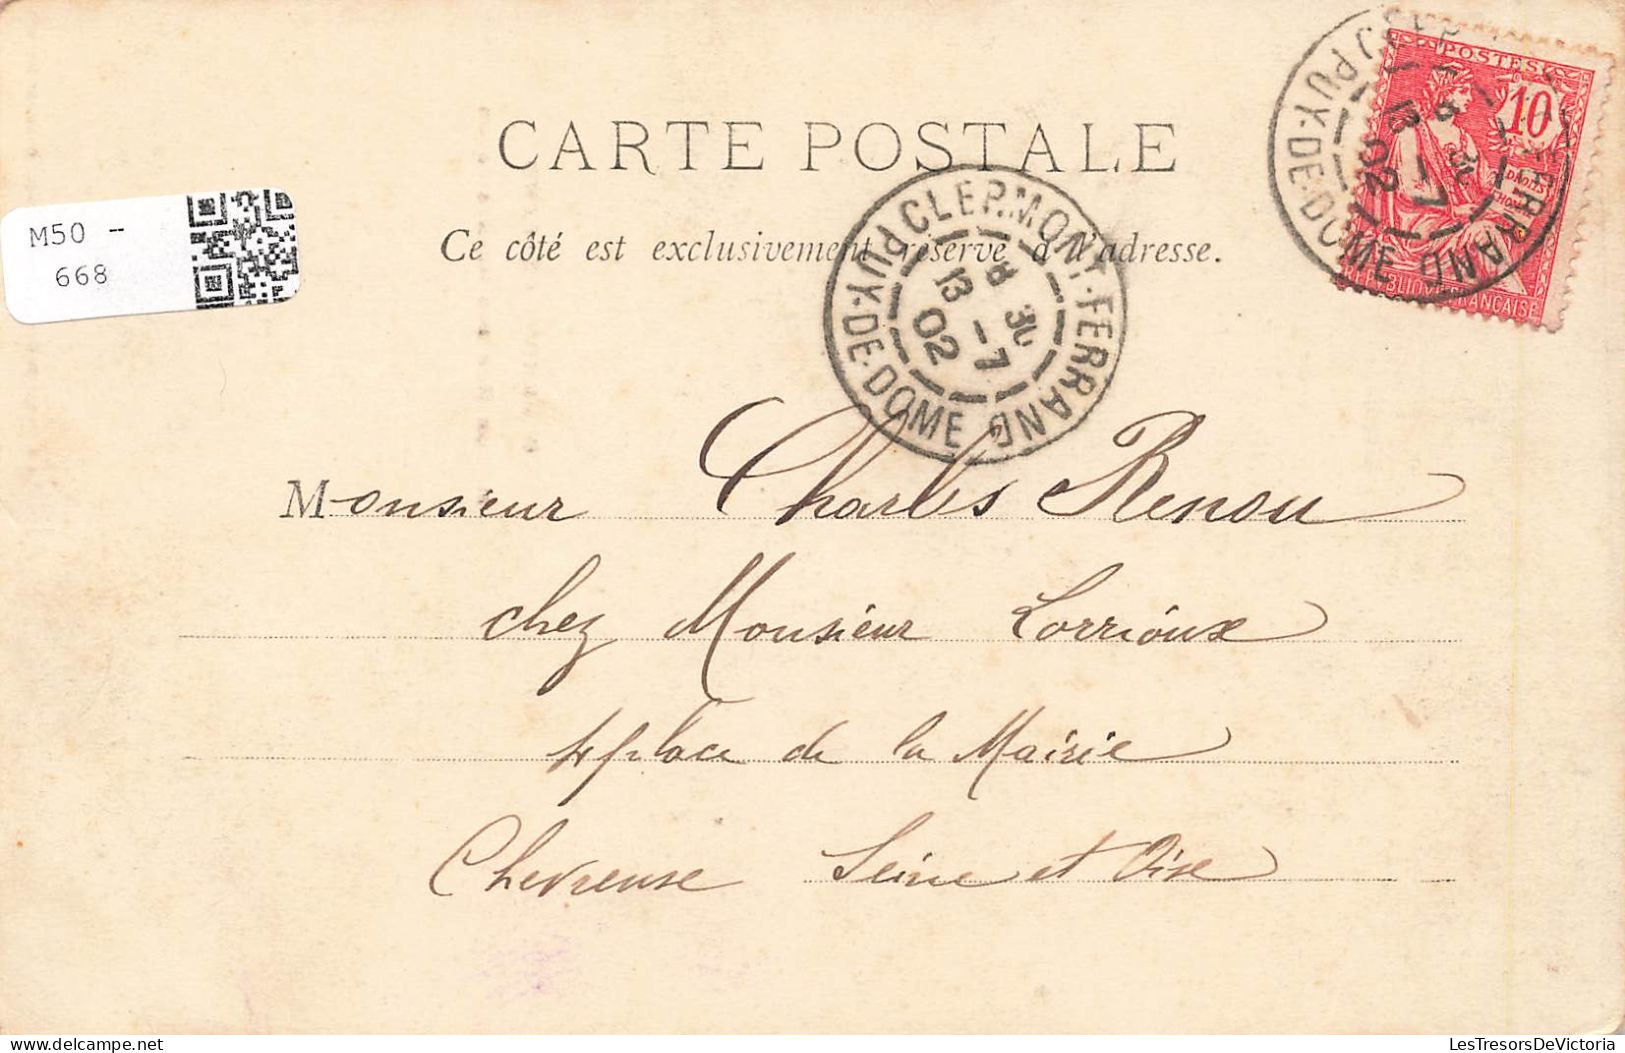 CARTE POSTALE
Ce côté est exclusivement réservé à l'adresse.
M50 -
668
POSTES
10
DROITS
REPUBLIQUE FRANCAISE
CLERMONT-FERRAND
PUY-DE-DOME
8 30
13 - 7
02
CLERMONT-FERRAND
PUY-DE-DOME
8 30
13 - 7
02
Monsieur Charles Renou
chez Monsieur Lorrioux
4 place de la Mairie
Chevreuse Seine et Oise
LesTresorsDeVictoria